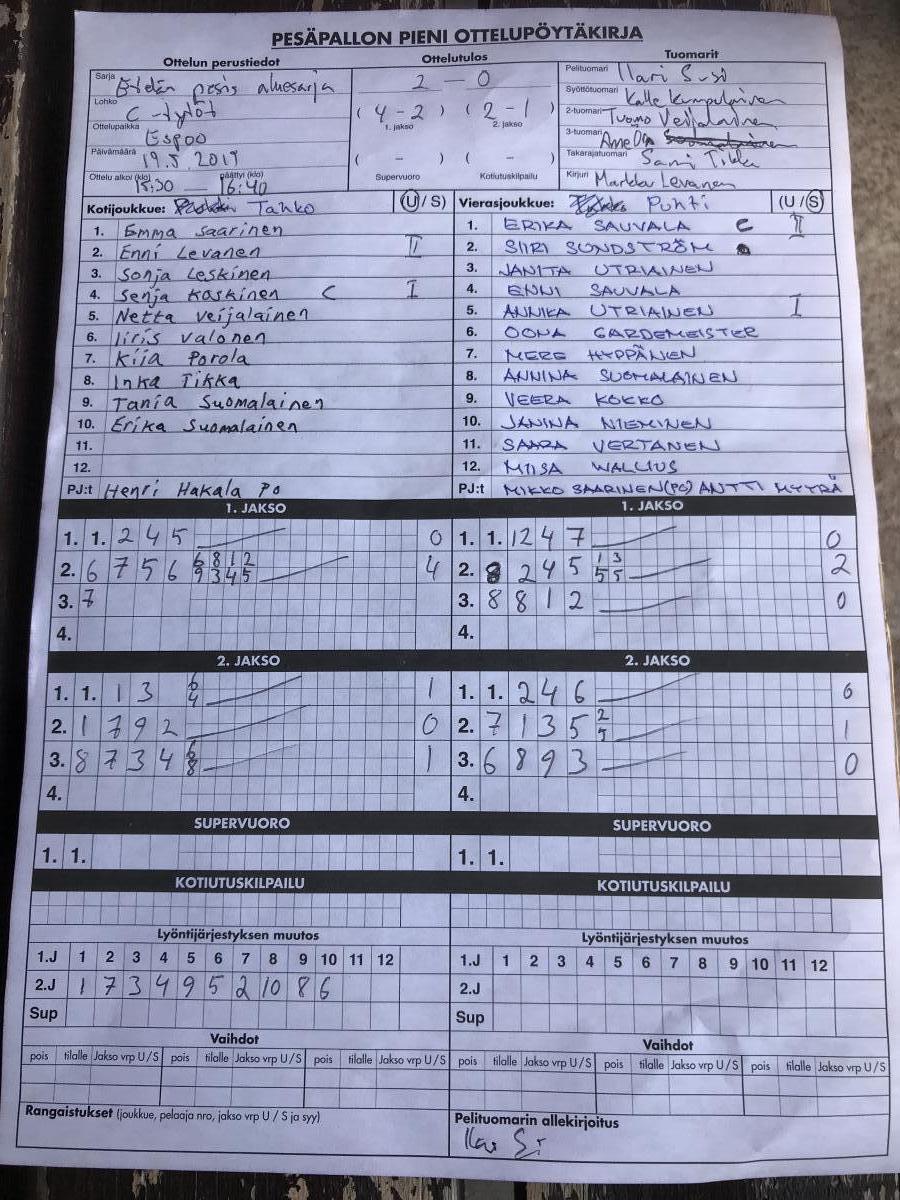 PESÄPALLON PIENI OTTELUPÖYTÄKIRJA
Ottelun perustiedot Ottelutulos Tuomarit
Sarja Etelän pesis aluesarja
2 - 0
Pelituomari Ilari Susi
Lohko C-tytöt
( 4 - 2 ) ( 2 - 1 )
1. jakso 2. jakso
Syöttötuomari Kalle Kumpulainen
Ottelupaikka Espoo
2-tuomari Tuomo Veijalainen
3-tuomari
Päivämäärä 19.5.2019
( - ) ( - )
Supervuoro Kotiutuskilpailu
Takarajatuomari Sami Tikka
Ottelu alkoi (klo) 15:30 — päättyi (klo) 16:40
Kirjuri Markku Levanen
Kotijoukkue: Tahko (U / S)
Vierasjoukkue: Puhti (U / S)
1. Emma Saarinen
2. Enni Levanen II
3. Sonja Leskinen
4. Senja Koskinen C I
5. Netta Veijalainen
6. Iiris Valonen
7. Kiia Porola
8. Inka Tikka
9. Tania Suomalainen
10. Erika Suomalainen
11.
12.
PJ:t Henri Hakala PO
1. ERIKA SAUVALA C II
2. SIIRI SUNDSTRÖM
3. JANITA UTRIAINEN
4. ENNI SAUVALA
5. ANNIKA UTRIAINEN I
6. OONA GARDEMEISTER
7. MERE HYPPÄNEN
8. ANNINA SUOMALAINEN
9. VEERA KOKKO
10. JANINA NIEMINEN
11. SAARA VERTANEN
12. MIISA WALLIUS
PJ:t MIKKO SAARINEN (PO) ANTTI MYYRÄ
1. JAKSO
1. 1. 2 4 5 0
2. 6 7 5 6 6 8 1 2 4
9 3 4 5
3. 7
4.
1. JAKSO
1. 1. 12 4 7 0
2. 8 2 4 5 1 3 2
5 5
3. 8 8 1 2 0
4.
2. JAKSO
1. 1. 1 3 6 1
4
2. 1 7 9 2 0
3. 8 7 3 4 1
4.
2. JAKSO
1. 1. 2 4 6 0
2. 7 1 3 5 2 1
3. 6 8 9 3 0
4.
SUPERVUORO
1. 1.
SUPERVUORO
1. 1.
KOTIUTUSKILPAILU
KOTIUTUSKILPAILU
Lyöntijärjestyksen muutos
1.J 1 2 3 4 5 6 7 8 9 10 11 12
2.J 1 7 3 4 9 5 2 10 8 6
Sup
Lyöntijärjestyksen muutos
1.J 1 2 3 4 5 6 7 8 9 10 11 12
2.J
Sup
Vaihdot
pois tilalle Jakso vrp U / S pois tilalle Jakso vrp U / S pois tilalle Jakso vrp U / S
Vaihdot
pois tilalle Jakso vrp U / S pois tilalle Jakso vrp U / S pois tilalle Jakso vrp U / S
Rangaistukset (joukkue, pelaaja nro, jakso vrp U / S ja syy)
Pelituomarin allekirjoitus